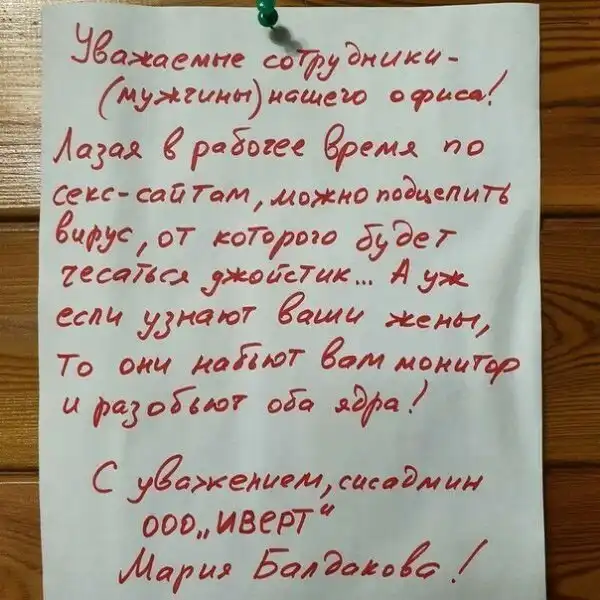 Уважаемые сотрудники-
(мужчины) нашего офиса!
Лазая в рабочее время по
секс-сайтам, можно подцепить
вирус, от которого будет
чесаться джойстик... А уж
если узнают ваши жены,
то они набьют вам монитор
и разобьют оба ядра!
С уважением, сисадмин
ООО „ИВЕРТ"
Мария Балдакова!